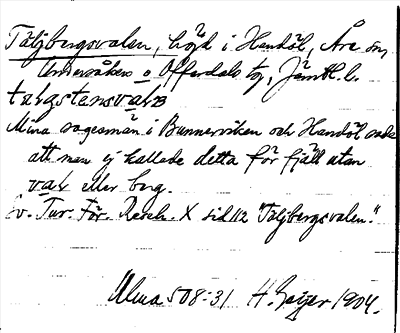 Täljbergsvalen, höjd i Handöl, Åre sn,
Undersåkers o Offerdals tg, Jämtl. l.
talgstensvalɴ
Mina sagesmän i Bunnerviken och Handöl sade
att man ej kallade detta för fjäll utan
val eller berg.
Sv. Tur. För. Reseh. X sid 112 "Täljbergsvalen".
Ulma 508:31 H. Geijer 1904.